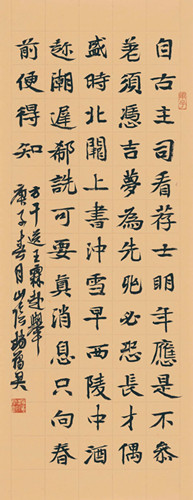 自古主司看荐士明年應是不參
差須憑吉夢為先兆必恐長才偶
盛時北闕上書沖雪早西陵中酒
趂潮遲郄詵可要真消息只向春
前便得知
方干送王霖赴舉
庚子春月山陰